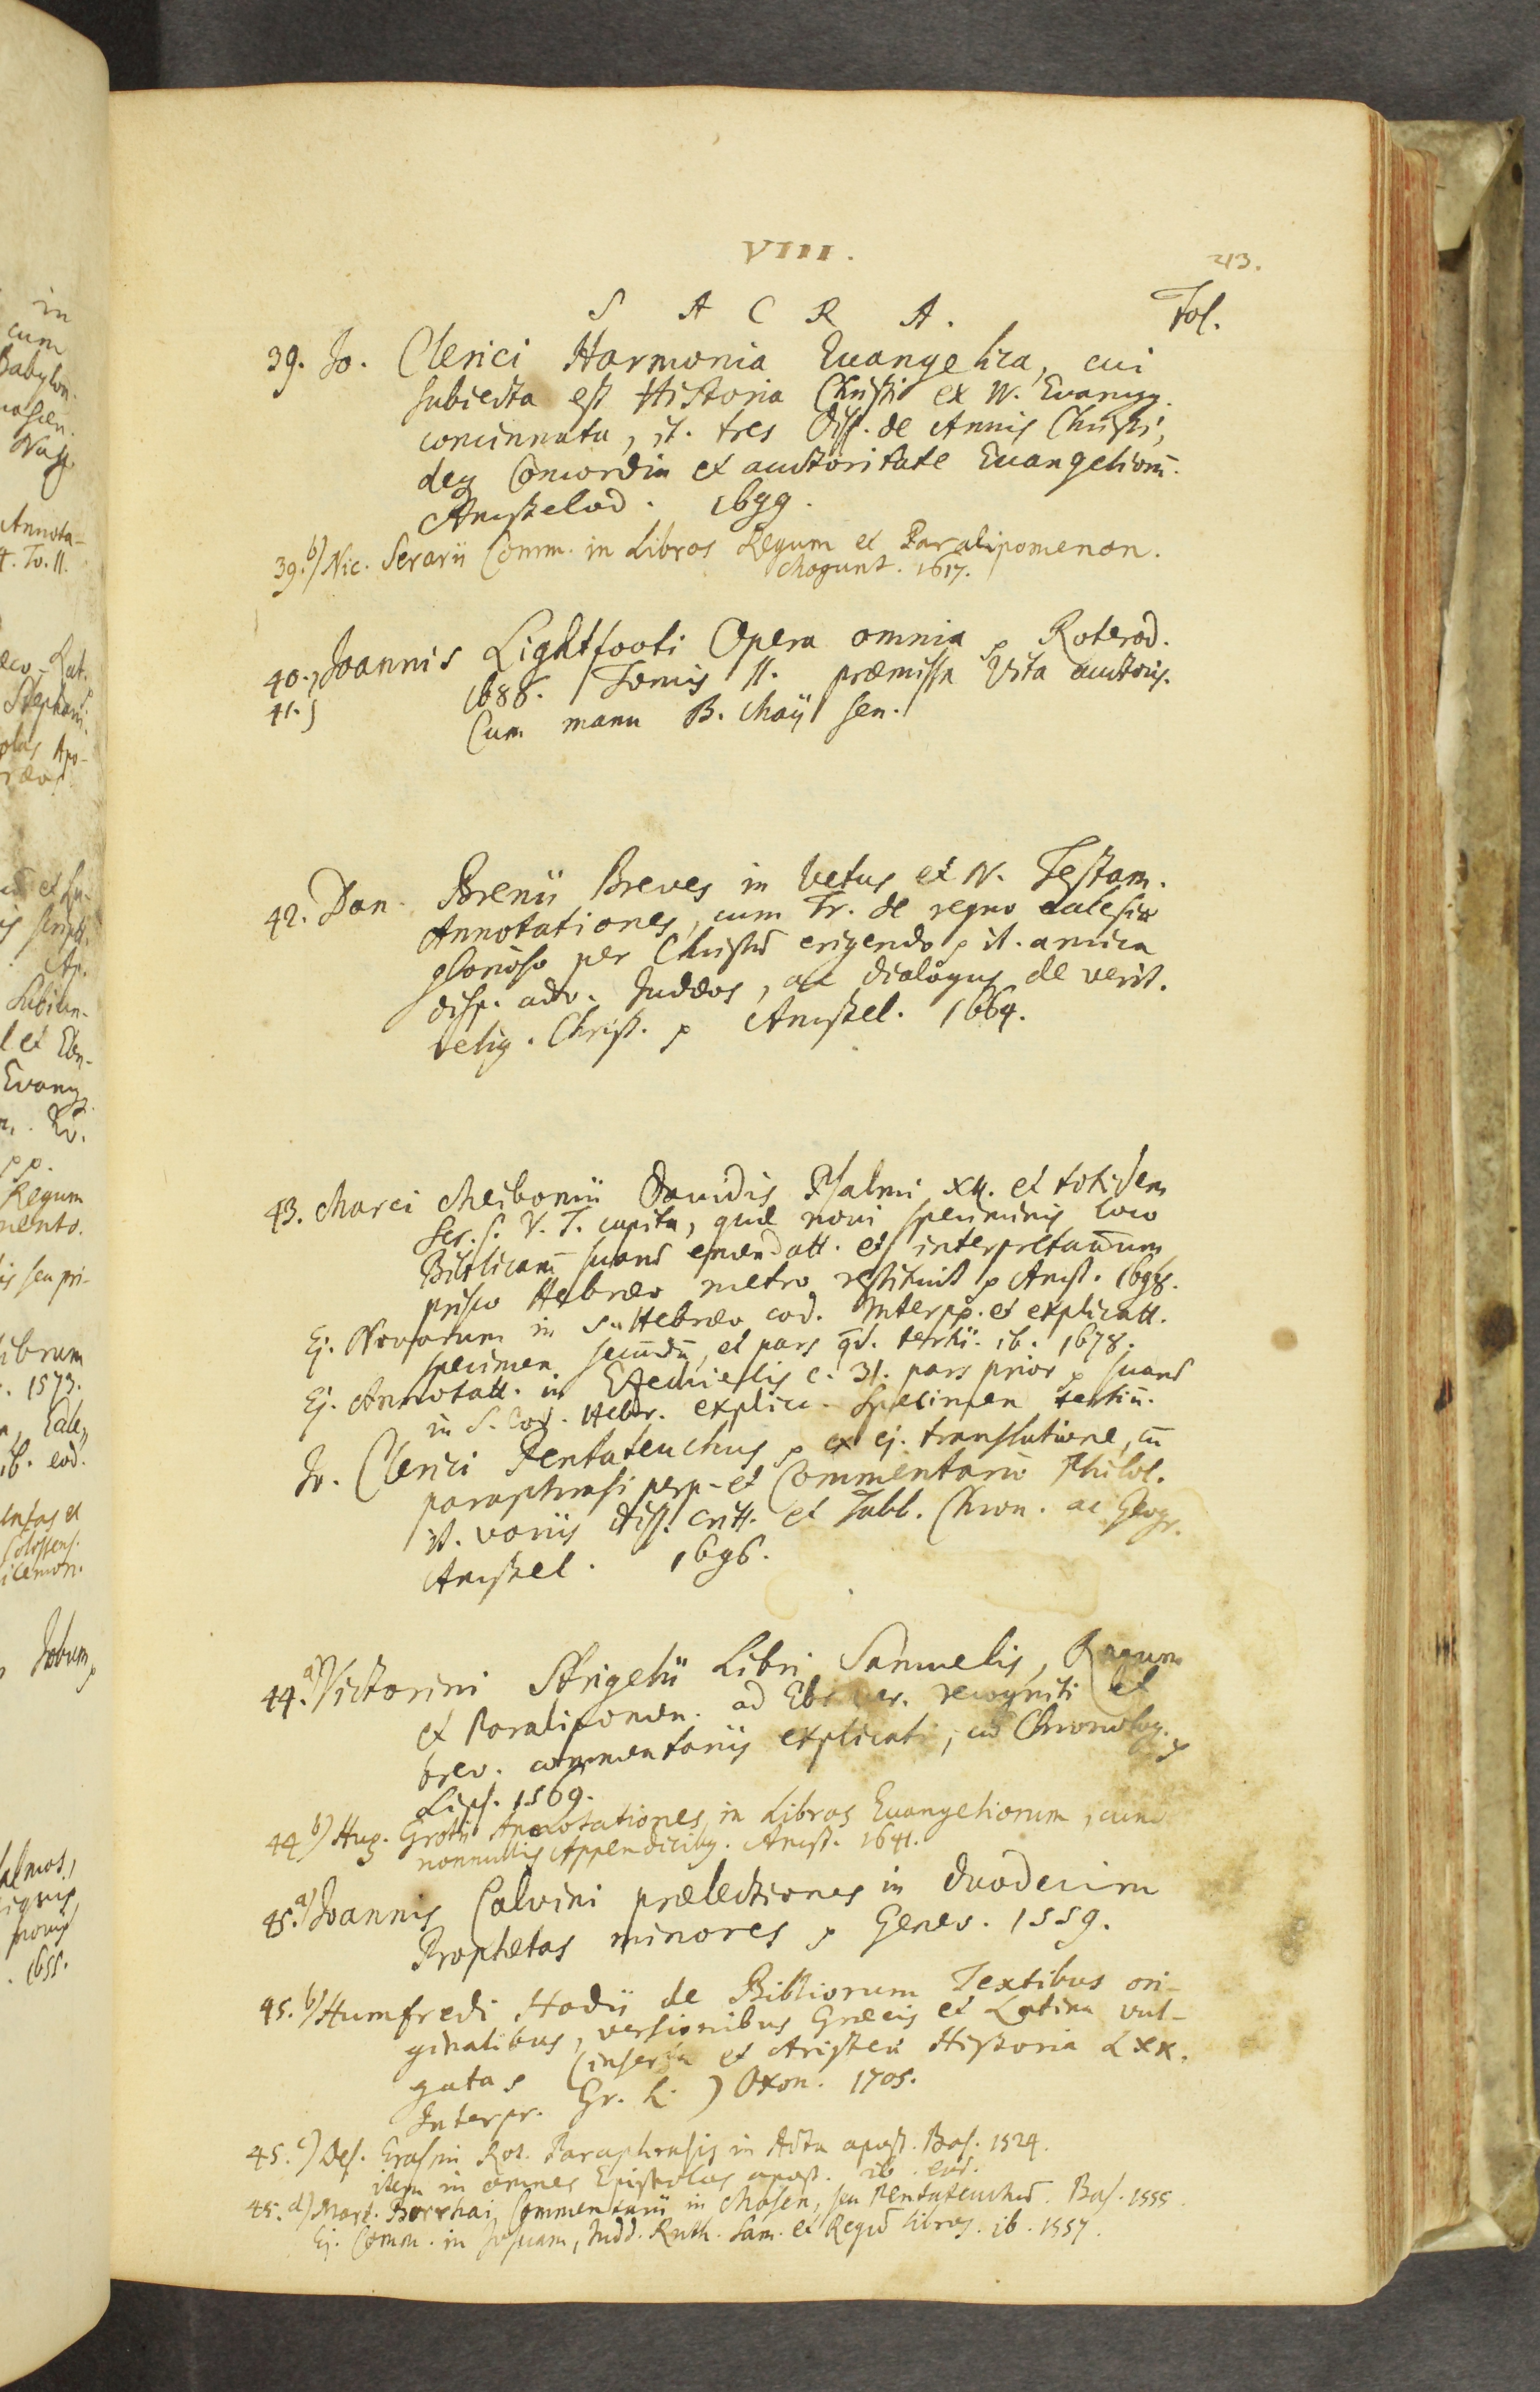 VIII.
213.
S A C R A. Fol.
39. Jo. Clerici Harmonia Euangelica, cui
subiecta est Historia Christi ex IV. Euangg.
concinnata, it. tres Diss. de Annis Christi,
deq Concordia et auctoritate Euangeliorū.
Amstelod. 1699.
39.b) Nic. Serarii Comm. in Libros Regum et Paralipomenon.
Mogunt. 1617.
40.) Joannis Lightfooti Opera omnia p Roterod.
41.) 1686. Tomis II. præmissa Vita auctoris.
Cum manu B. Maji sen.
42. Dan. Brenii Breves in Vetus et N. Testam.
Annotationes, cum Tr. de regno ecclesiæ
glorioso per Christū erigendo p it. amica
disp. adv. Judæos, ac dialogus de verit.
relig. Christ. p Amstel. 1664.
43. Marci Meibomii Davidis Psalmi XII. et totidem
Scr. S. V. T. capita, quæ novi speciminis loco
Biblicarū suarū emendatt. et interpretationum
prisco Hebræo metro restituit p Amst. 1698.
Ej. Novarum in S. Hebræo cod. Interpp. et explicatt.
specimen secundū, et pars qd. tertii. ib. 1678.
Ej. Annotatt. in Ezechielis c. 31. pars prior p suarū
in S. Cod. Hebr. explic. Specimen tertiū.
Jo. Clerici Pentateuchus p ex ej. translatione, cū
paraphrasi perp. et Commentario Philol.
it. variis diss. critt. et Tabb. Chron. ac Geogr.
Amstel. 1696.
44.a) Victorini Strigelii Libri Samuelis, Regum
et Paralipomen. ad Ebr. ver. recogniti et
brev. commentariis explicati, cū Chronolog. p
Lips. 1569.
44 b) Hug. Grotii Annotationes in Libros Euangeliorum, cum
nonnullis Appendicibq. Amst. 1641.
45.a) Joannis Calvini prælectiones in duodecim
Prophetas minores p Genev. 1559.
45.b) Humfredi Hodii de Bibliorum Textibus ori-
ginalibus, versionibus Græcis et Latina vul-
gata p (inserta et Aristeæ Historia LXX.
Interpr. Gr. L.) Oxon. 1705.
45.c) Des. Erasmi Rot. Paraphrasis in Acta apost. Bas. 1524.
item in omnes Epistolas apost. ib. eod.
45.d) Mart. Borrhai Commentarii in Mosen, seu Pentateuchū. Bas. 1555.
Ej. Comm. in Josuam, Judd. Ruth. Sam. et Regū libros. ib. 1557.